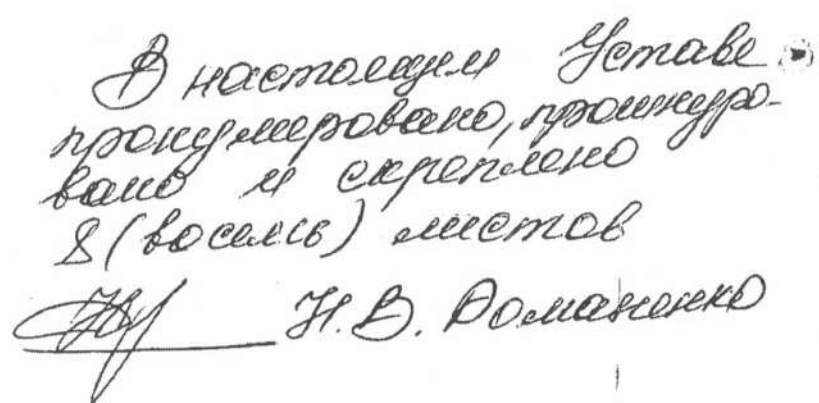 В настоящем Уставе
пронумеровано, прошнуро-
вано и скреплено
8 (восемь) листов
Н.В. Романенко